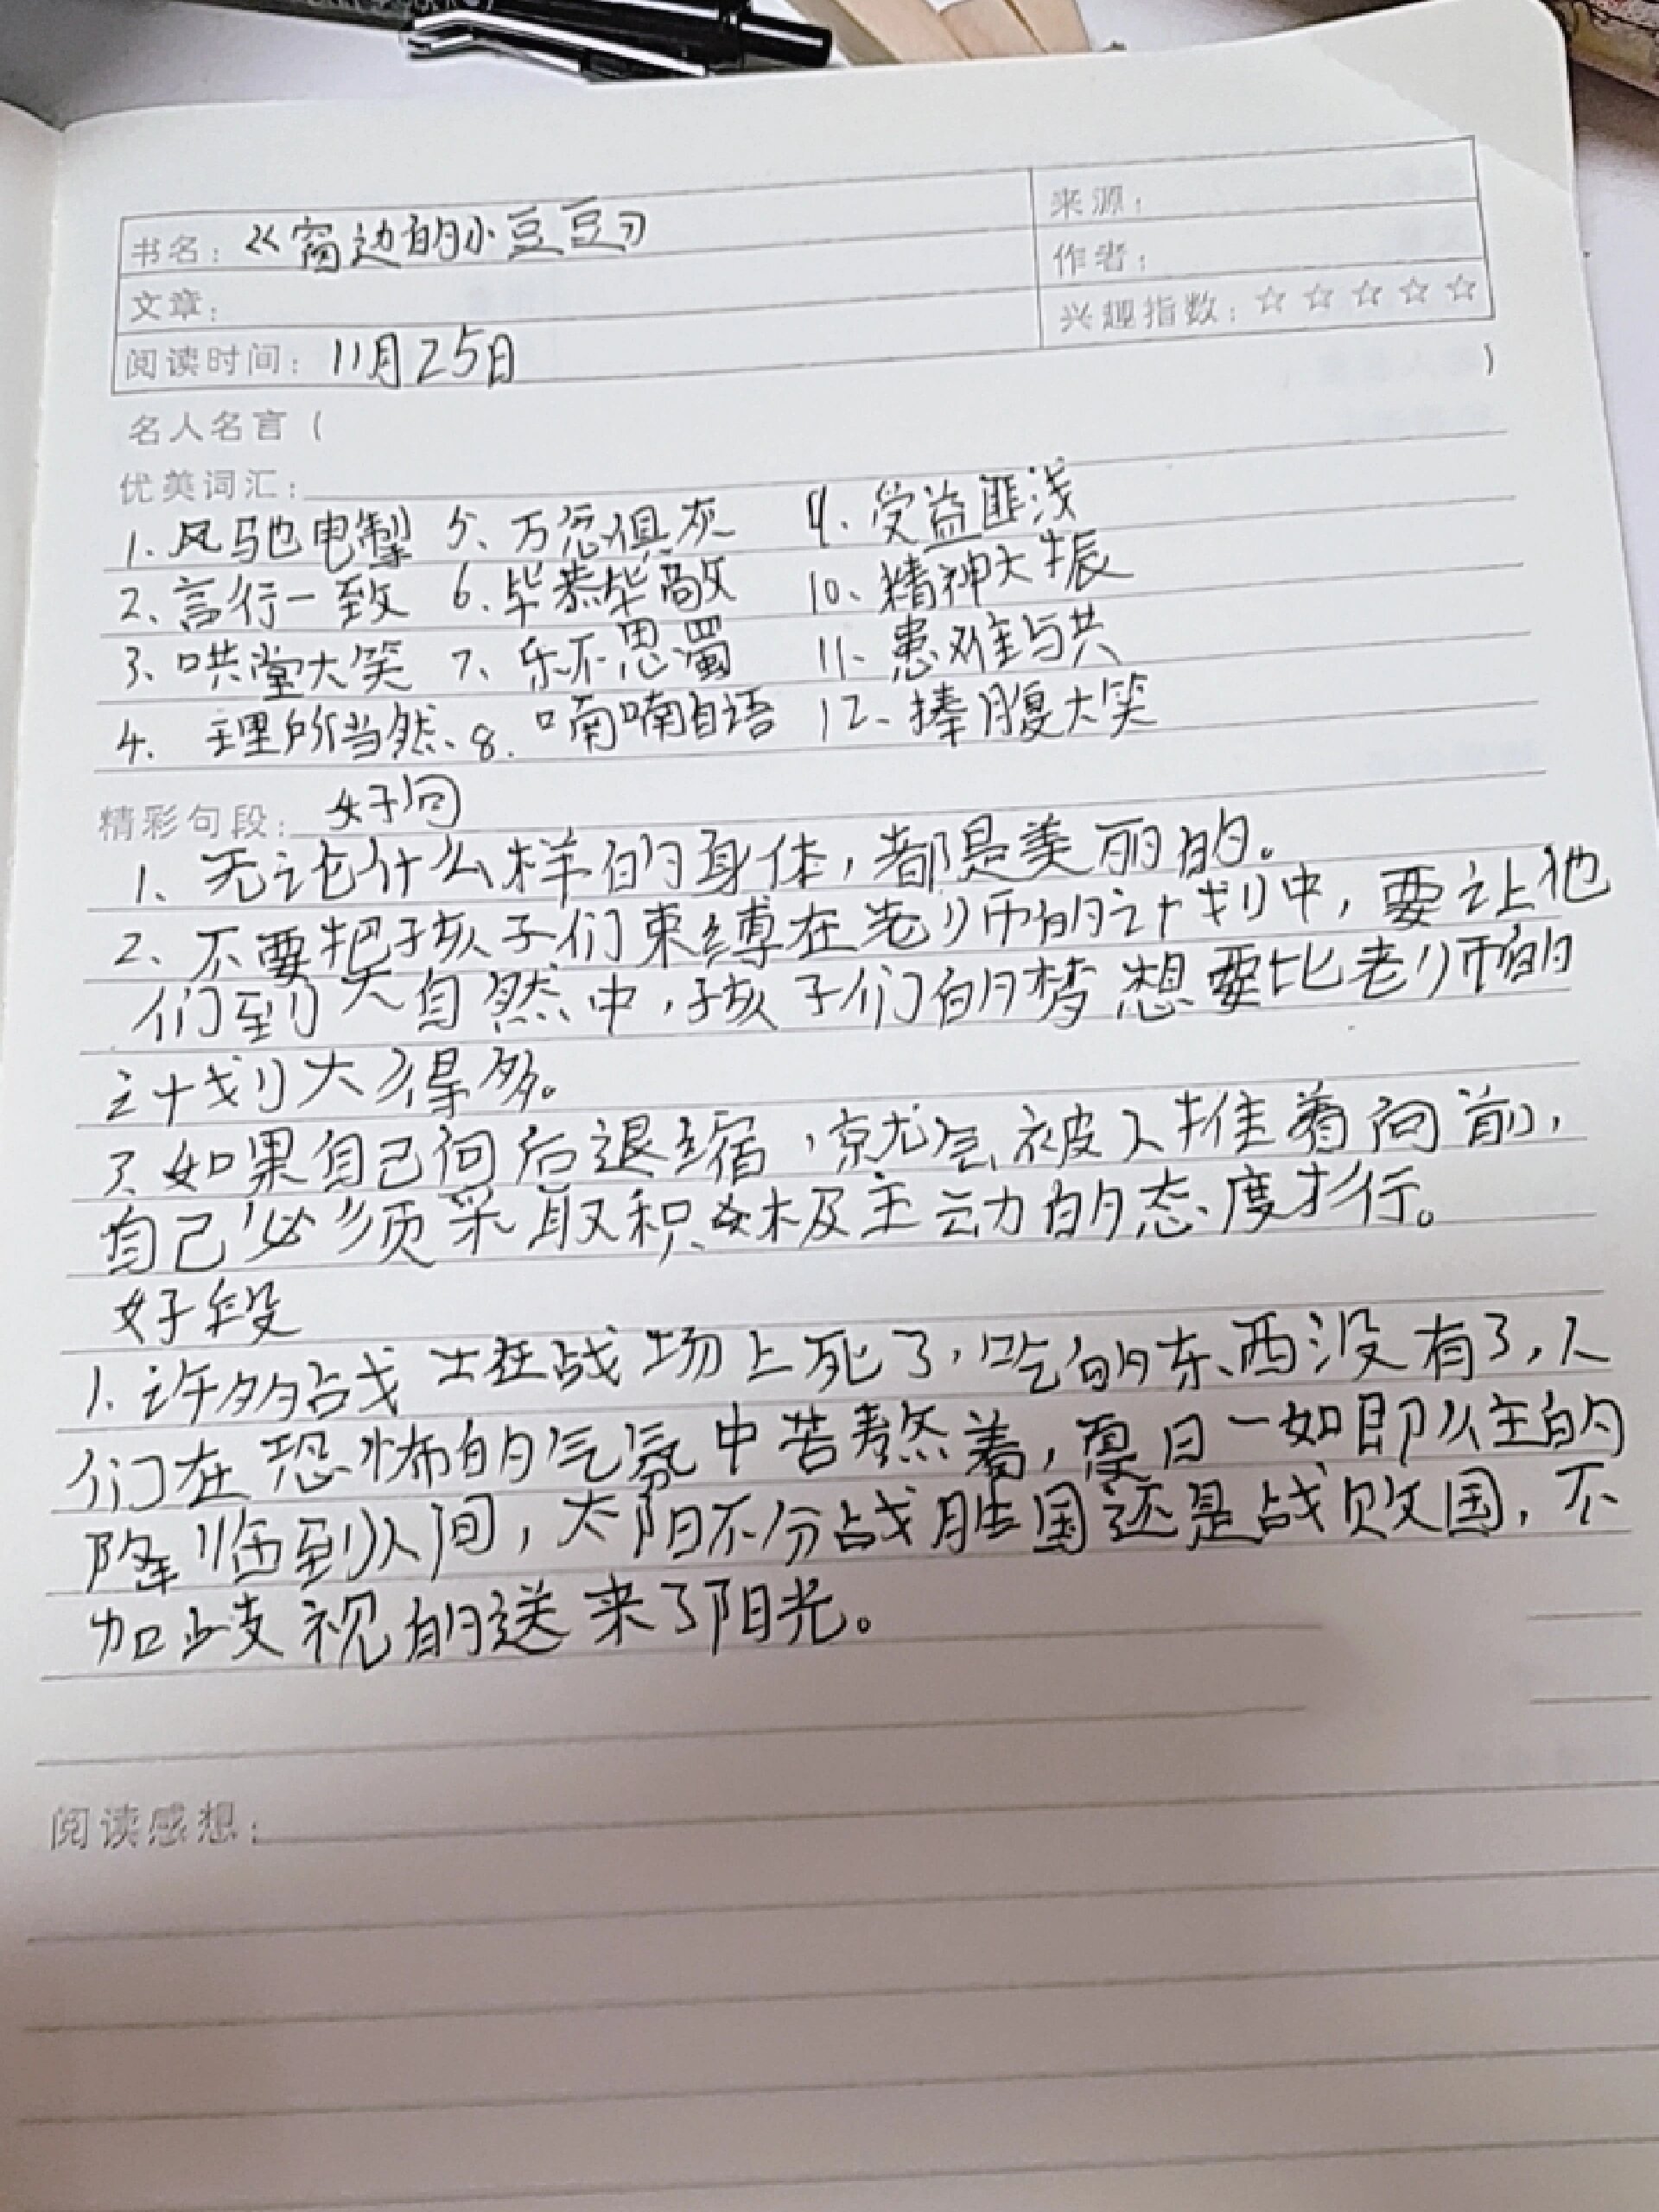 书名：《窗边的小豆豆》
来源：
作者：
文章：
兴趣指数：☆☆☆☆☆
阅读时间：11月25日
名人名言（ ）
优美词汇：
1、风驰电掣 5、万念俱灰 9、受益匪浅
2、言行一致 6、毕恭毕敬 10、精神大振
3、哄堂大笑 7、乐不思蜀 11、患难与共
4、理所当然、8、喃喃自语 12、捧腹大笑
精彩句段：好句
1、无论什么样的身体，都是美丽的。
2、不要把孩子们束缚在老师的计划中，要让他
们到大自然中，孩子们的梦想要比老师的
计划大得多。
3、如果自己向后退缩，就会被人推着向前，
自己必须采取积极主动的态度才行。
好段
1、许多战士在战场上死了，吃的东西没有了，人
们在恐怖的气氛中苦熬着，夏日一如即往的
降临到人间，太阳不分战胜国还是战败国，不
加歧视的送来了阳光。
阅读感想：